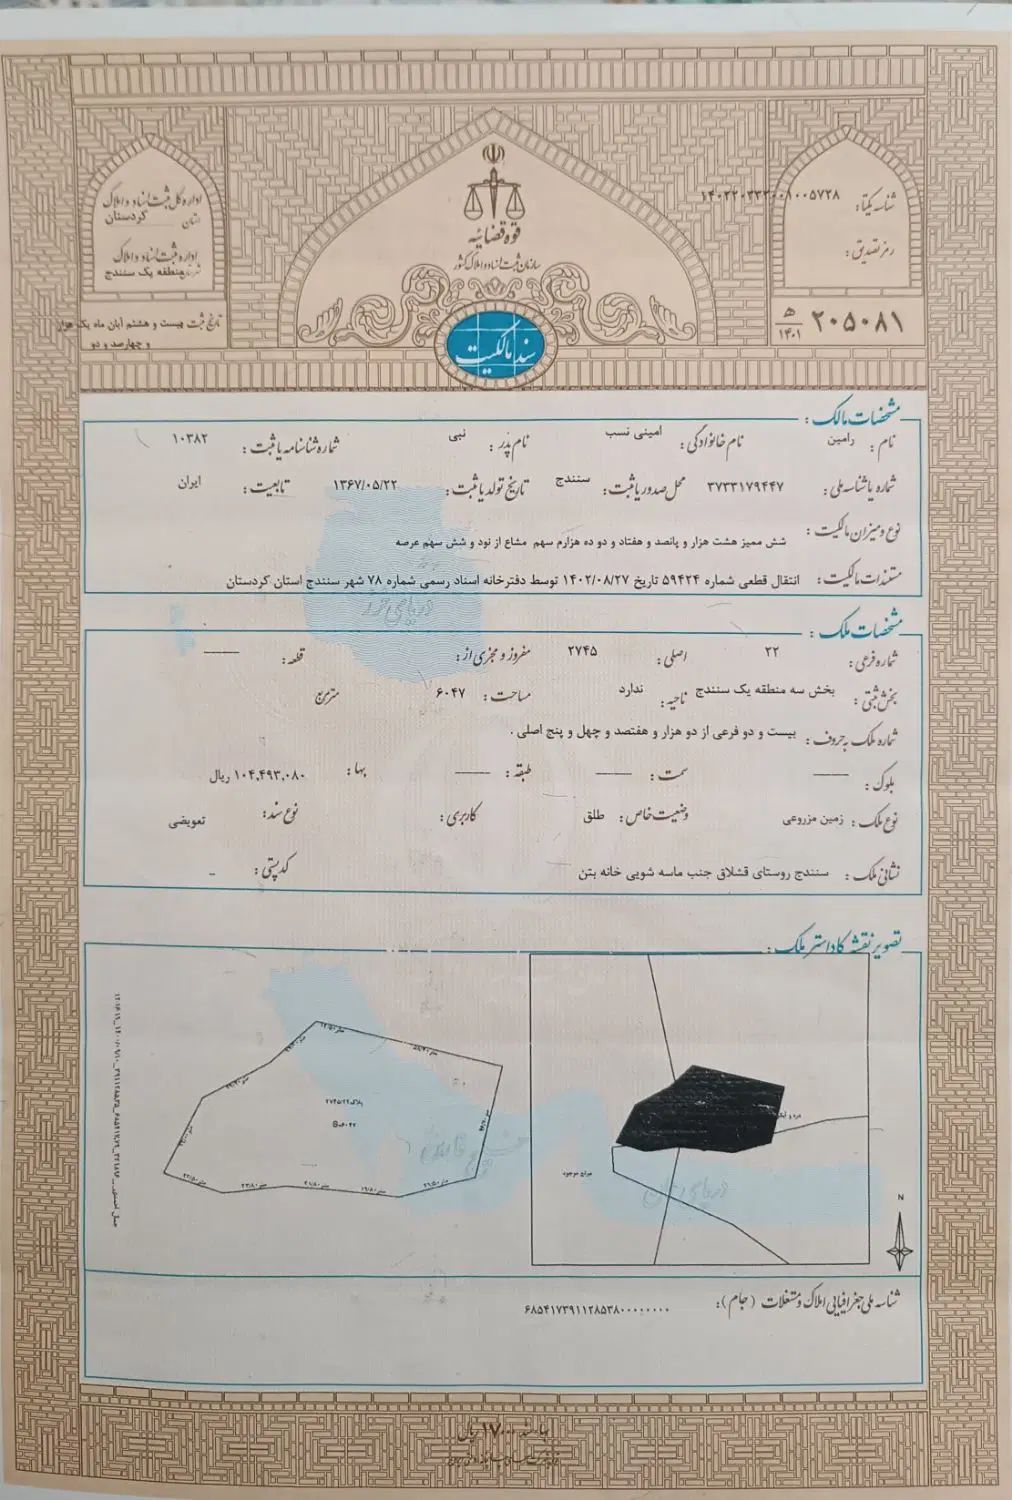 قوه قضائیه
سازمان ثبت اسناد و املاک کشور
سند مالکیت
شناسه یکتا:
رمز تصدیق:
۲۰۵۰۸۱ ه ۱۴۰۱
اداره کل ثبت اسناد و املاک
استان کردستان
اداره ثبت اسناد و املاک
منطقه یک سنندج
تاریخ ثبت بیست و هشتم آبان ماه یک هزار
و چهارصد و دو
مشخصات مالک:
نام: رامین نام خانوادگی: امینی نسب نام پدر: نبی شماره شناسنامه یا ثبت: ۱۰۳۸۲
شماره یا شناسه ملی: ۳۷۳۳۱۷۹۴۴۷ محل صدور یا ثبت: سنندج تاریخ تولد یا ثبت: ۱۳۶۷/۰۵/۲۲ تابعیت: ایران
نوع و میزان مالکیت: شش ممیز هشت هزار و پانصد و هفتاد و دو ده هزارم سهم مشاع از نود و شش سهم عرصه
مستندات مالکیت: انتقال قطعی شماره ۵۹۴۲۴ تاریخ ۱۴۰۲/۰۸/۲۷ توسط دفترخانه اسناد رسمی شماره ۷۸ شهر سنندج استان کردستان
دریای خزر
مشخصات ملک:
شماره فرعی: ۲۲ اصلی: ۲۷۴۵ مفروز و مجزی از: قطعه: ——
بخش ثبتی: بخش سه منطقه یک سنندج ناحیه: ندارد مساحت: ۶۰۴۷ متر مربع
شماره ملک به حروف: بیست و دو فرعی از دو هزار و هفتصد و چهل و پنج اصلی .
بلوک: —— سمت: —— طبقه: —— بها: ۱۰۴,۴۹۳,۰۸۰ ریال
نوع ملک: زمین مزروعی وضعیت خاص: طلق کاربری: نوع سند: تعویضی
نشانی ملک: سنندج روستای قشلاق جنب ماسه شویی خانه بتن کدپستی: -
تصویر نقشه کاداستر ملک:
پلاک ۲۷۴۵/۲۲
S=۶۰۴۷
خلیج فارس
دریای عمان
سراج موجود
N
شناسه ملی جغرافیایی املاک و مستغلات (جام): ۶۸۵۴۱۷۳۹۱۱۲۸۵۳۸۰۰۰۰۰۰۰۰۰
بهاء سند ۱۷۰۰۰ ریال